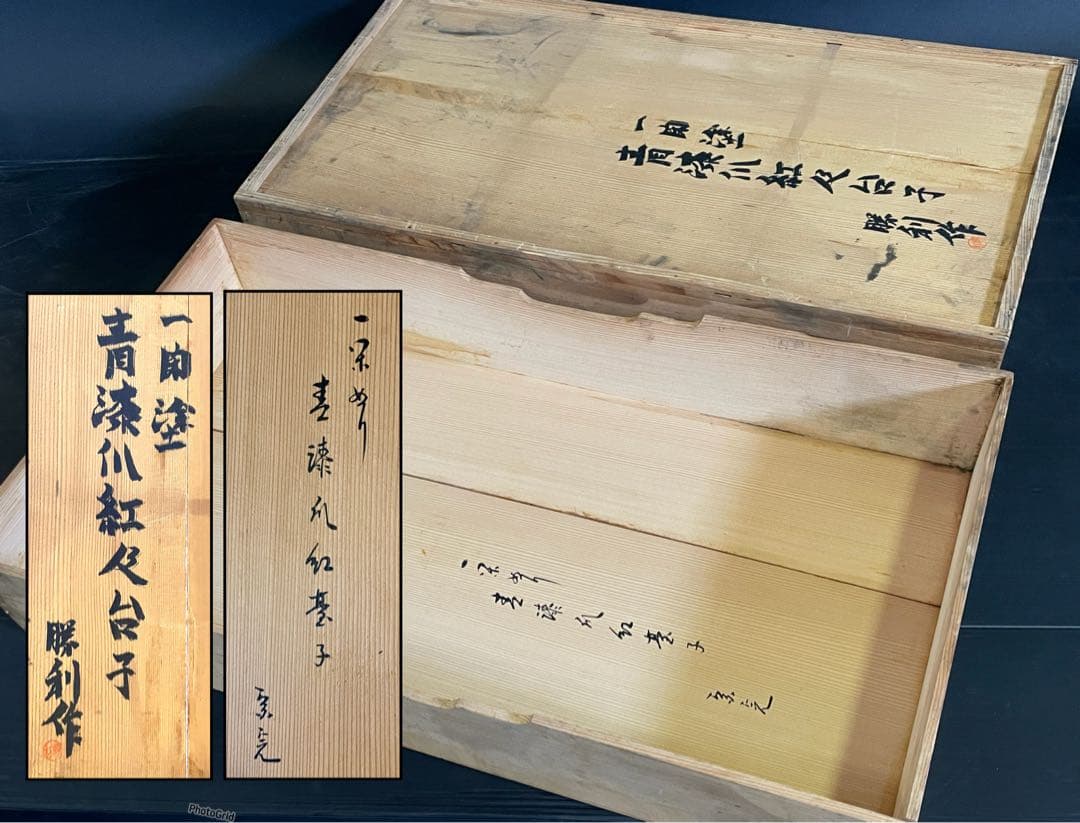 一閑塗
青漆爪紅及台子
勝利作
一閑塗
青漆爪紅及台子
勝利作
一閑ぬり
青漆爪紅臺子
一閑ぬり
青漆爪紅臺子
PhotoGrid